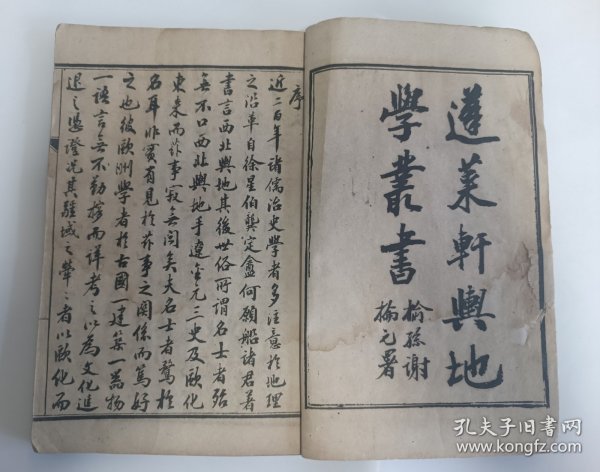 蓬萊軒輿地
學叢書
掄孫謝
掄元署
序
近二百年諸儒治史學者多注意於地理
之沿革自徐星伯龔定盦何願船諸君著
書言西北輿地其後世俗所謂名士者殆
無不口西北輿地手遼金元三史及歐化
東來而茲事寂無聞矣夫名士者騖於
名耳非實有見於茲事之關係而篤好
之也彼歐洲學者於古國一建築一器物
一語言無不勤搜而詳考之以為文化進
退之證況其疆域之犖犖者以歐化而
孔夫子旧书网
www.kongfz.com